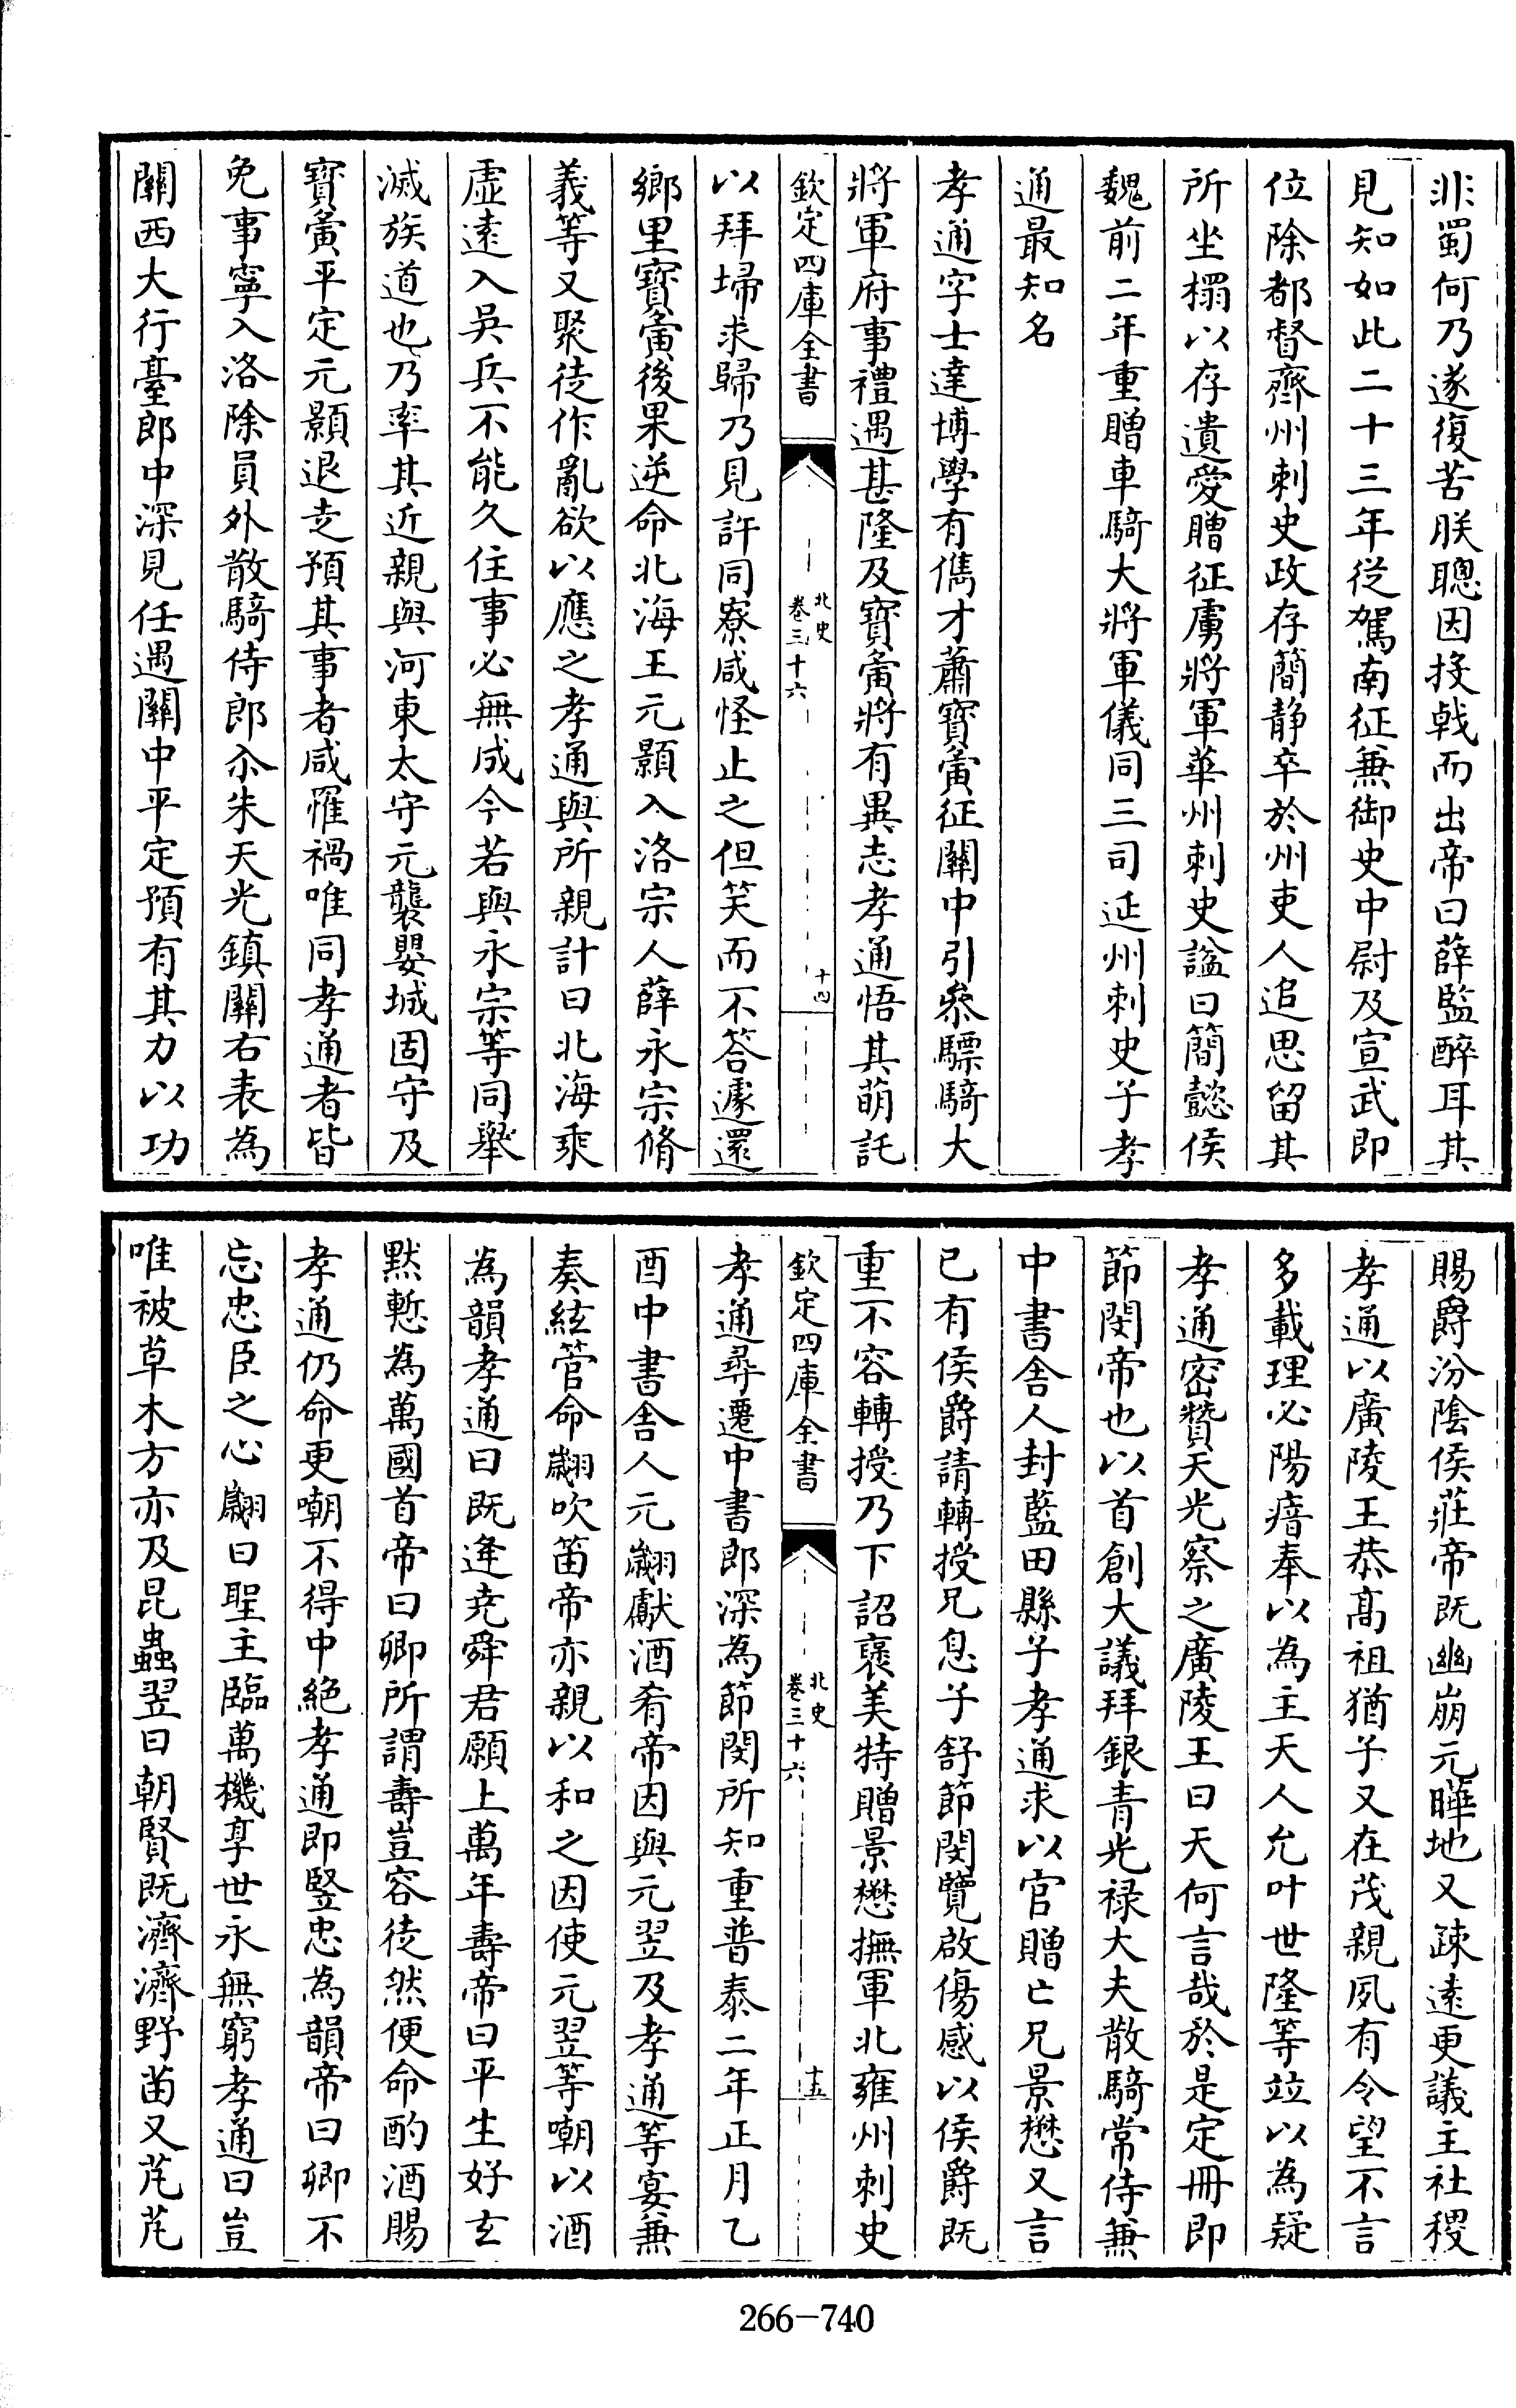 非蜀何乃遂復苦朕聰因投戟而出帝曰薛監醉耳其
見知如此二十三年從駕南征兼御史中尉及宣武即
位除都督齊州刺史政存簡静卒於州吏人追思留其
所坐榻以存遺愛贈征虜將軍華州刺史諡曰簡懿侯
魏前二年重贈車騎大將軍儀同三司延州刺史子孝
通最知名
孝通字士達博學有儁才蕭寶夤征關中引叅驃騎大
將軍府事禮遇甚隆及寶夤將有異志孝通悟其萌託
欽定四庫全書
北史
卷三十六
十四
以拜埽求歸乃見許同寮咸怪止之但笑而不答遽還
鄉里寶夤後果逆命北海王元顥入洛宗人薛永宗脩
義等又聚徒作亂欲以應之孝通與所親計曰北海乘
虛逺入吳兵不能久住事必無成今若與永宗等同舉
滅族道也乃率其近親與河東太守元襲嬰城固守及
寶夤平定元顥退走預其事者咸罹禍唯同孝通者皆
免事寧入洛除員外散騎侍郎尒朱天光鎮關右表為
關西大行臺郎中深見任遇關中平定預有其力以功
賜爵汾陰侯莊帝既幽崩元曄地又疎遠更議主社稷
孝通以廣陵王恭髙祖猶子又在茂親夙有令望不言
多載理必陽瘖奉以為主天人允叶世隆等竝以為疑
孝通密贊天光察之廣陵王曰天何言哉於是定冊即
節閔帝也以首創大議拜銀青光禄大夫散騎常侍兼
中書舍人封藍田縣子孝通求以官贈亡兄景懋又言
已有侯爵請轉授兄息子舒節閔覽啟傷感以侯爵既
重不容轉授乃下詔褒美特贈景懋撫軍北雍州刺史
欽定四庫全書
北史
卷三十六
十五
孝通尋遷中書郎深為節閔所知重普泰二年正月乙
酉中書舍人元翽獻酒肴帝因與元翌及孝通等宴兼
奏絃管命翽吹笛帝亦親以和之因使元翌等嘲以酒
為韻孝通曰既逢堯舜君願上萬年壽帝曰平生好玄
黙慙為萬國首帝曰卿所謂壽豈容徒然便命酌酒賜
孝通仍命更嘲不得中絶孝通即豎忠為韻帝曰卿不
忘忠臣之心翽曰聖主臨萬機享世永無窮孝通曰豈
唯被草木方亦及昆蟲翌曰朝賢既濟濟野苗又芃芃
266-740